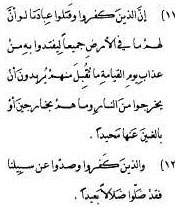 (١١) إنَّ الذينَ كفروا وقتلوا عبادنا لو أنَّ
لهم ما في الأرض جميعاً ليفتدوا به من
عذاب يوم القيامة ما تُقُبِّلَ منهم يريدون أن
يخرجوا من النار وما هم بخارجين أو
بالغين عنها محيداً.
(١٢) والذين كفروا وصدّوا عن سبيلنا
فقد ضلّوا ضلالاً بعيداً.